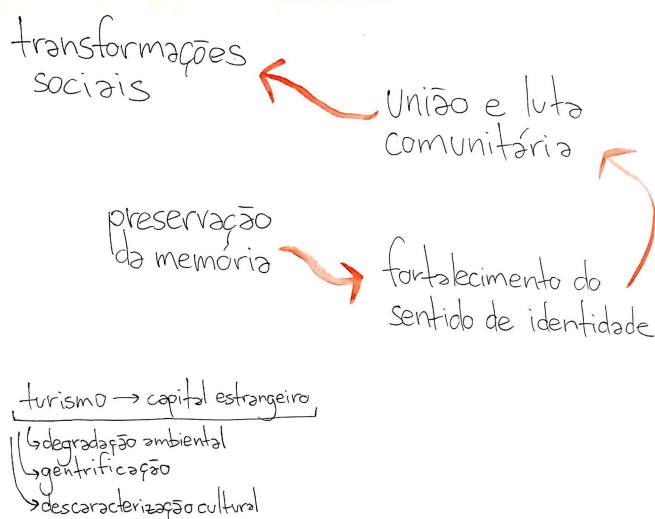 transformações
sociais
união e luta
comunitária
preservação
da memória
fortalecimento do
sentido de identidade
turismo → capital estrangeiro
↳ degradação ambiental
↳ gentrificação
↳ descaracterização cultural